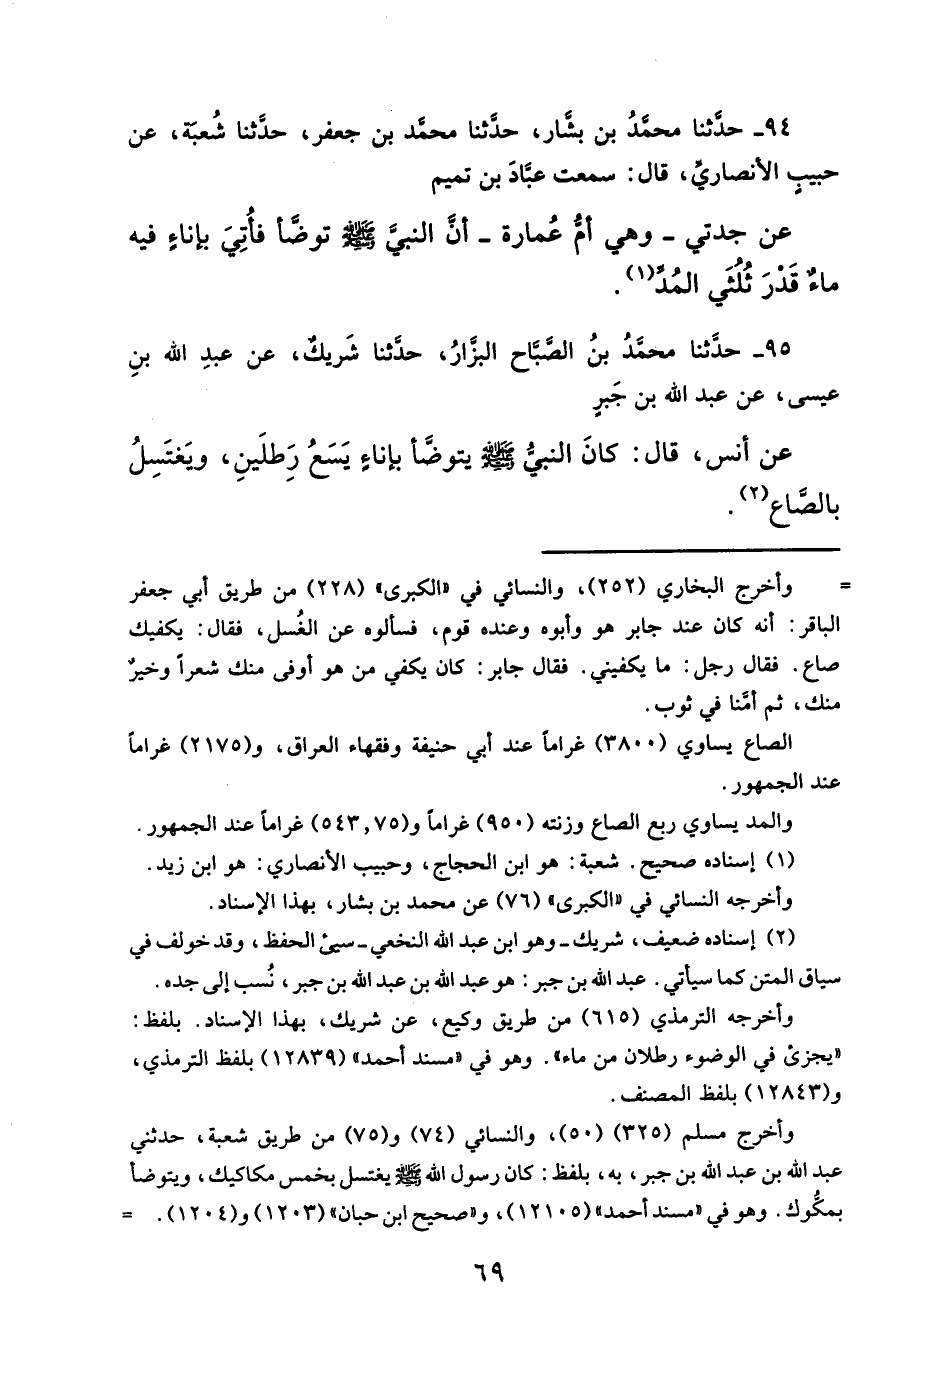 ٩٤ـ حدَّثنا محمَّدُ بن بشَّار، حدَّثنا محمَّد بن جعفر، حدَّثنا شُعبَة، عن
حبيبٍ الأنصاريِّ، قال: سمعت عبَّادَ بن تميم
عن جدتي ـ وهي أمُّ عُمارة ـ أنَّ النبيَّ ﷺ توضَّأ فأُتِيَ بإناءٍ فيه
ماءٌ قَدْرَ ثُلُثَي المُدِّ(١).
٩٥ـ حدَّثنا محمَّدُ بنُ الصَّبَّاح البزَّارُ، حدَّثنا شَريكٌ، عن عبدِ الله بنِ
عيسى، عن عبد الله بن جَبرٍ
عن أنس، قال: كانَ النبيُّ ﷺ يتوضَّأ بإناءٍ يَسَعُ رَِطلَينِ، ويَغتَسِلُ
بالصَّاع(٢).
= وأخرج البخاري (٢٥٢)، والنسائي في «الكبرى» (٢٢٨) من طريق أبي جعفر
الباقر: أنه كان عند جابر هو وأبوه وعنده قوم، فسألوه عن الغُسل، فقال: يكفيك
صاع. فقال رجل: ما يكفيني. فقال جابر: كان يكفي من هو أوفى منك شعراً وخيرٌ
منك، ثم أمَّنا في ثوب.
الصاع يساوي (٣٨٠٠) غراماً عند أبي حنيفة وفقهاء العراق، و(٢١٧٥) غراماً
عند الجمهور.
والمد يساوي ربع الصاع وزنته (٩٥٠) غراماً و(٥٤٣,٧٥) غراماً عند الجمهور.
(١) إسناده صحيح. شعبة: هو ابن الحجاج، وحبيب الأنصاري: هو ابن زيد.
وأخرجه النسائي في «الكبرى» (٧٦) عن محمد بن بشار، بهذا الإسناد.
(٢) إسناده ضعيف، شريك ـ وهو ابن عبد الله النخعي ـ سيئ الحفظ، وقد خولف في
سياق المتن كما سيأتي. عبد الله بن جبر: هو عبد الله بن عبد الله بن جبر، نُسب إلى جده.
وأخرجه الترمذي (٦١٥) من طريق وكيع، عن شريك، بهذا الإسناد. بلفظ:
«يجزئ في الوضوء رطلان من ماء». وهو في «مسند أحمد» (١٢٨٣٩) بلفظ الترمذي،
و(١٢٨٤٣) بلفظ المصنف.
وأخرج مسلم (٣٢٥) (٥٠)، والنسائي (٧٤) و(٧٥) من طريق شعبة، حدثني
عبد الله بن عبد الله بن جبر، به، بلفظ: كان رسول الله ﷺ يغتسل بخمس مكاكيك، ويتوضأ
بمكُّوك. وهو في «مسند أحمد» (١٢١٠٥)، و«صحيح ابن حبان» (١٢٠٣) و(١٢٠٤). =
٦٩